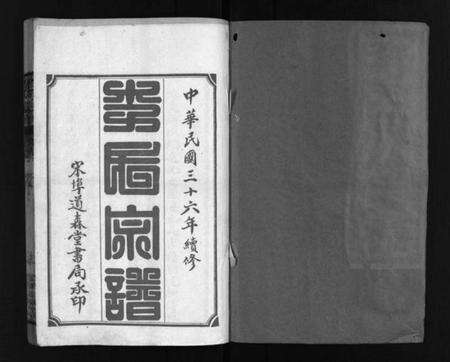 中華民國三十六年續修
氏宗譜
宋埠道森堂書局承印